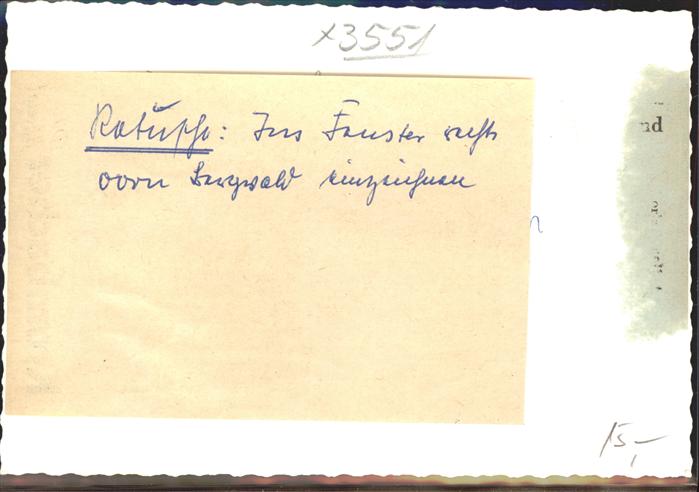 x3551
Retusche: Ins Fenster rechts
vorn Bergwald einzeichnen
nd
15,-